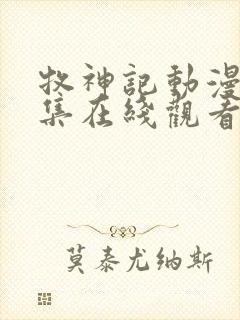 牧神記動漫
集在綫觀看
莫泰尤纳斯